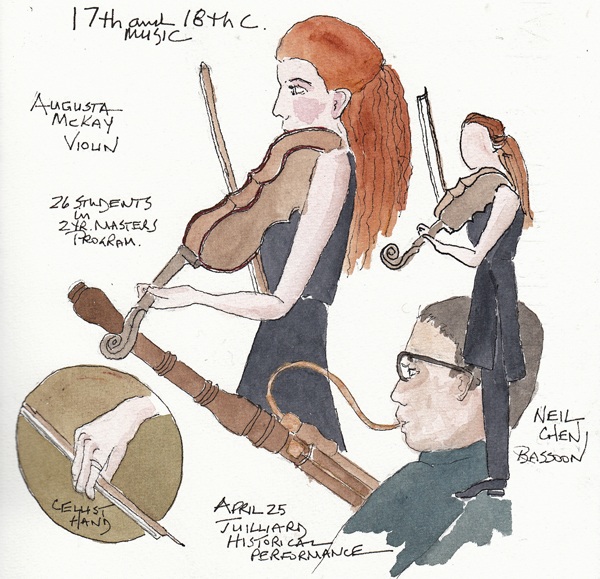 17th and 18th C.
MUSIC
AUGUSTA
MCKAY
VIOLIN
26 STUDENTS
in
2 YR. MASTERS
PROGRAM.
CELLIST
HAND
APRIL 25
JUILLIARD
HISTORICAL
PERFORMANCE
NEIL
CHEN,
BASSOON